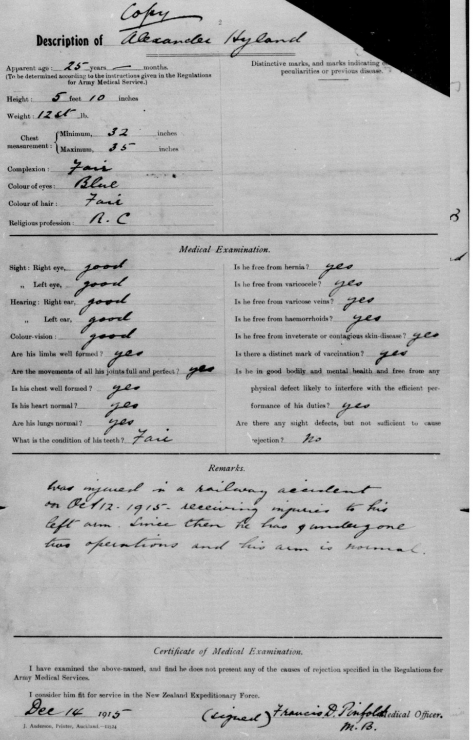 Copy
2
Description of Alexander Hyland
Apparent age : 25 years — months.
(To be determined according to the instructions given in the Regulations
for Army Medical Service.)
Height : 5 feet 10 inches
Weight : 12 st lb.
Chest measurement : { Minimum, 32 inches
Maximum, 35 inches
Complexion : Fair
Colour of eyes : Blue
Colour of hair : Fair
Religious profession : R. C
Distinctive marks, and marks indicating
peculiarities or previous disease.
Medical Examination.
Sight : Right eye, good
„ Left eye, good
Hearing : Right ear, good
„ Left ear, good
Colour-vision : good
Are his limbs well formed ? yes
Are the movements of all his joints full and perfect ? yes
Is his chest well formed ? yes
Is his heart normal ? yes
Are his lungs normal ? yes
What is the condition of his teeth ? Fair
Is he free from hernia ? yes
Is he free from varicocele ? yes
Is he free from varicose veins ? yes
Is he free from haemorrhoids ? yes
Is he free from inveterate or contagious skin-disease ? yes
Is there a distinct mark of vaccination ? yes
Is he in good bodily and mental health and free from any
physical defect likely to interfere with the efficient per-
formance of his duties ? yes
Are there any slight defects, but not sufficient to cause
rejection ? No
Remarks.
Was injured in a railway accident
on Oct 12. 1915 - receiving injuries to his
left arm. Since then he has undergone
two operations and his arm is normal.
Certificate of Medical Examination.
I have examined the above-named, and find he does not present any of the causes of rejection specified in the Regulations for
Army Medical Services.
I consider him fit for service in the New Zealand Expeditionary Force.
Dec 14 1915 (signed) Francis D. Pinfold Medical Officer.
M. B.
J. Anderson, Printer, Auckland